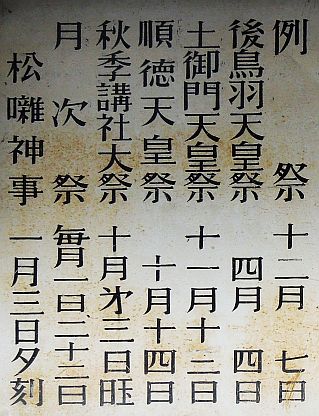 例祭 十二月七日
後鳥羽天皇祭 四月四日
土御門天皇祭 十一月十二日
順徳天皇祭 十月十四日
秋季講社大祭 十月才三日旺
月次祭 毎月一日二十二日
松囃神事 一月三日夕刻